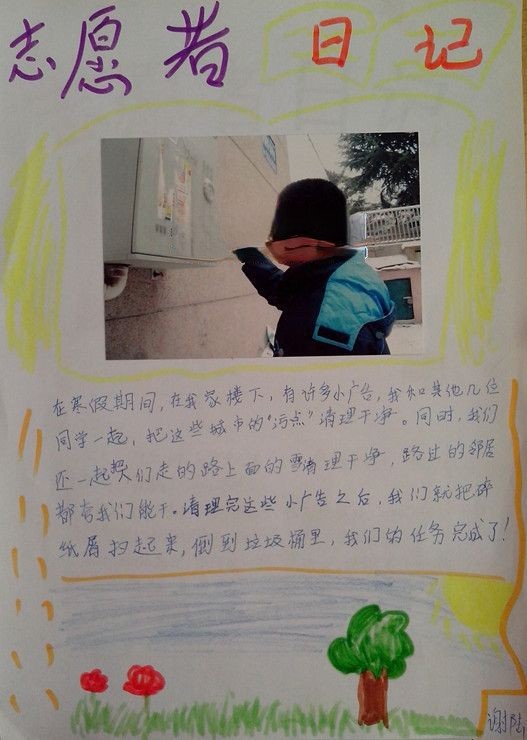 志愿者 日记
在寒假期间,在我家楼下,有许多小广告,我和其他几位
同学一起,把这些城市的“污点”清理干净。同时,我们
还一起把人们走的路上面的雪清理干净,路过的邻居
都夸我们能干。清理完这些小广告之后,我们就把碎
纸屑扫起来,倒到垃圾桶里,我们的任务完成了!
谢陆